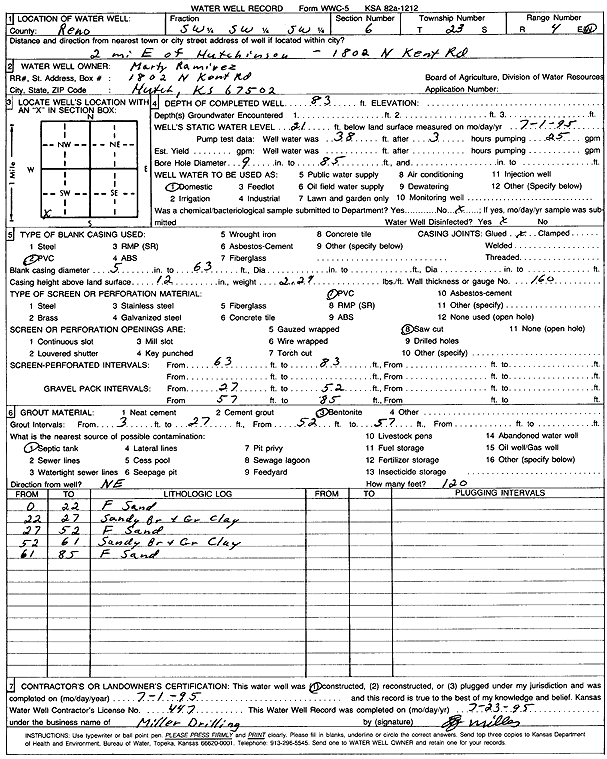 WATER WELL RECORD Form WWC-5 KSA 82a-1212
1 LOCATION OF WATER WELL: Fraction Section Number Township Number Range Number
County: Reno SW ¼ SW ¼ SW ¼ 6 T 23 S R 4 E/W
Distance and direction from nearest town or city street address of well if located within city?
2 mi E of Hutchinson - 1802 N Kent Rd
2 WATER WELL OWNER: Marty Ramirez
RR#, St. Address, Box # : 1802 N Kent Rd Board of Agriculture, Division of Water Resources
City, State, ZIP Code : Hutch, KS 67502 Application Number:
3 LOCATE WELL'S LOCATION WITH AN "X" IN SECTION BOX:
N
NW NE
W E
SW SE
X
S
1 Mile
4 DEPTH OF COMPLETED WELL 83 ft. ELEVATION:
Depth(s) Groundwater Encountered 1. ft. 2. ft. 3. ft.
WELL'S STATIC WATER LEVEL 21 ft. below land surface measured on mo/day/yr 7-1-95
Pump test data: Well water was 38 ft. after 3 hours pumping 25 gpm
Est. Yield gpm: Well water was ft. after hours pumping gpm
Bore Hole Diameter 9 in. to 85 ft., and in. to ft.
WELL WATER TO BE USED AS: 5 Public water supply 8 Air conditioning 11 Injection well
1 Domestic 3 Feedlot 6 Oil field water supply 9 Dewatering 12 Other (Specify below)
2 Irrigation 4 Industrial 7 Lawn and garden only 10 Monitoring well
Was a chemical/bacteriological sample submitted to Department? Yes No x ; If yes, mo/day/yr sample was submitted Water Well Disinfected? Yes x No
5 TYPE OF BLANK CASING USED: 5 Wrought iron 8 Concrete tile CASING JOINTS: Glued x Clamped
1 Steel 3 RMP (SR) 6 Asbestos-Cement 9 Other (specify below) Welded
2 PVC 4 ABS 7 Fiberglass Threaded
Blank casing diameter 5 in. to 63 ft., Dia in. to ft., Dia in. to ft.
Casing height above land surface 12 in., weight 2.29 lbs./ft. Wall thickness or gauge No. 160
TYPE OF SCREEN OR PERFORATION MATERIAL: 7 PVC 10 Asbestos-cement
1 Steel 3 Stainless steel 5 Fiberglass 8 RMP (SR) 11 Other (specify)
2 Brass 4 Galvanized steel 6 Concrete tile 9 ABS 12 None used (open hole)
SCREEN OR PERFORATION OPENINGS ARE: 5 Gauzed wrapped 8 Saw cut 11 None (open hole)
1 Continuous slot 3 Mill slot 6 Wire wrapped 9 Drilled holes
2 Louvered shutter 4 Key punched 7 Torch cut 10 Other (specify)
SCREEN-PERFORATED INTERVALS: From 63 ft. to 83 ft., From ft. to ft.
From ft. to ft., From ft. to ft.
GRAVEL PACK INTERVALS: From 27 ft. to 52 ft., From ft. to ft.
From 57 ft. to 85 ft., From ft. to ft.
6 GROUT MATERIAL: 1 Neat cement 2 Cement grout 3 Bentonite 4 Other
Grout Intervals: From 3 ft. to 27 ft., From 52 ft. to 57 ft., From ft. to ft.
What is the nearest source of possible contamination: 10 Livestock pens 14 Abandoned water well
1 Septic tank 4 Lateral lines 7 Pit privy 11 Fuel storage 15 Oil well/Gas well
2 Sewer lines 5 Cess pool 8 Sewage lagoon 12 Fertilizer storage 16 Other (specify below)
3 Watertight sewer lines 6 Seepage pit 9 Feedyard 13 Insecticide storage
Direction from well? NE How many feet? 120
FROM TO LITHOLOGIC LOG FROM TO PLUGGING INTERVALS
0 22 F Sand
22 27 Sandy Br + Gr Clay
27 52 F Sand
52 61 Sandy Br + Gr Clay
61 85 F Sand
7 CONTRACTOR'S OR LANDOWNER'S CERTIFICATION: This water well was (1) constructed, (2) reconstructed, or (3) plugged under my jurisdiction and was
completed on (mo/day/year) 7-1-95 and this record is true to the best of my knowledge and belief. Kansas
Water Well Contractor's License No. 447 This Water Well Record was completed on (mo/day/yr) 7-23-95
under the business name of Miller Drilling by (signature) Miller
INSTRUCTIONS: Use typewriter or ball point pen. PLEASE PRESS FIRMLY and PRINT clearly. Please fill in blanks, underline or circle the correct answers. Send top three copies to Kansas Department
of Health and Environment, Bureau of Water, Topeka, Kansas 66620-0001. Telephone: 913-296-5545. Send one to WATER WELL OWNER and retain one for your records.